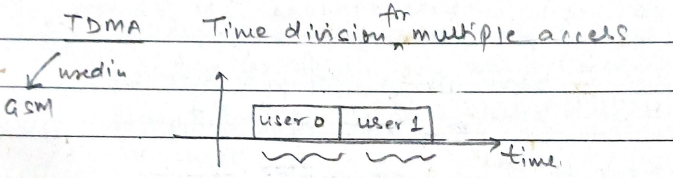 TDMA Time division for multiple access
used in
GSM
user 0 user 1
time.